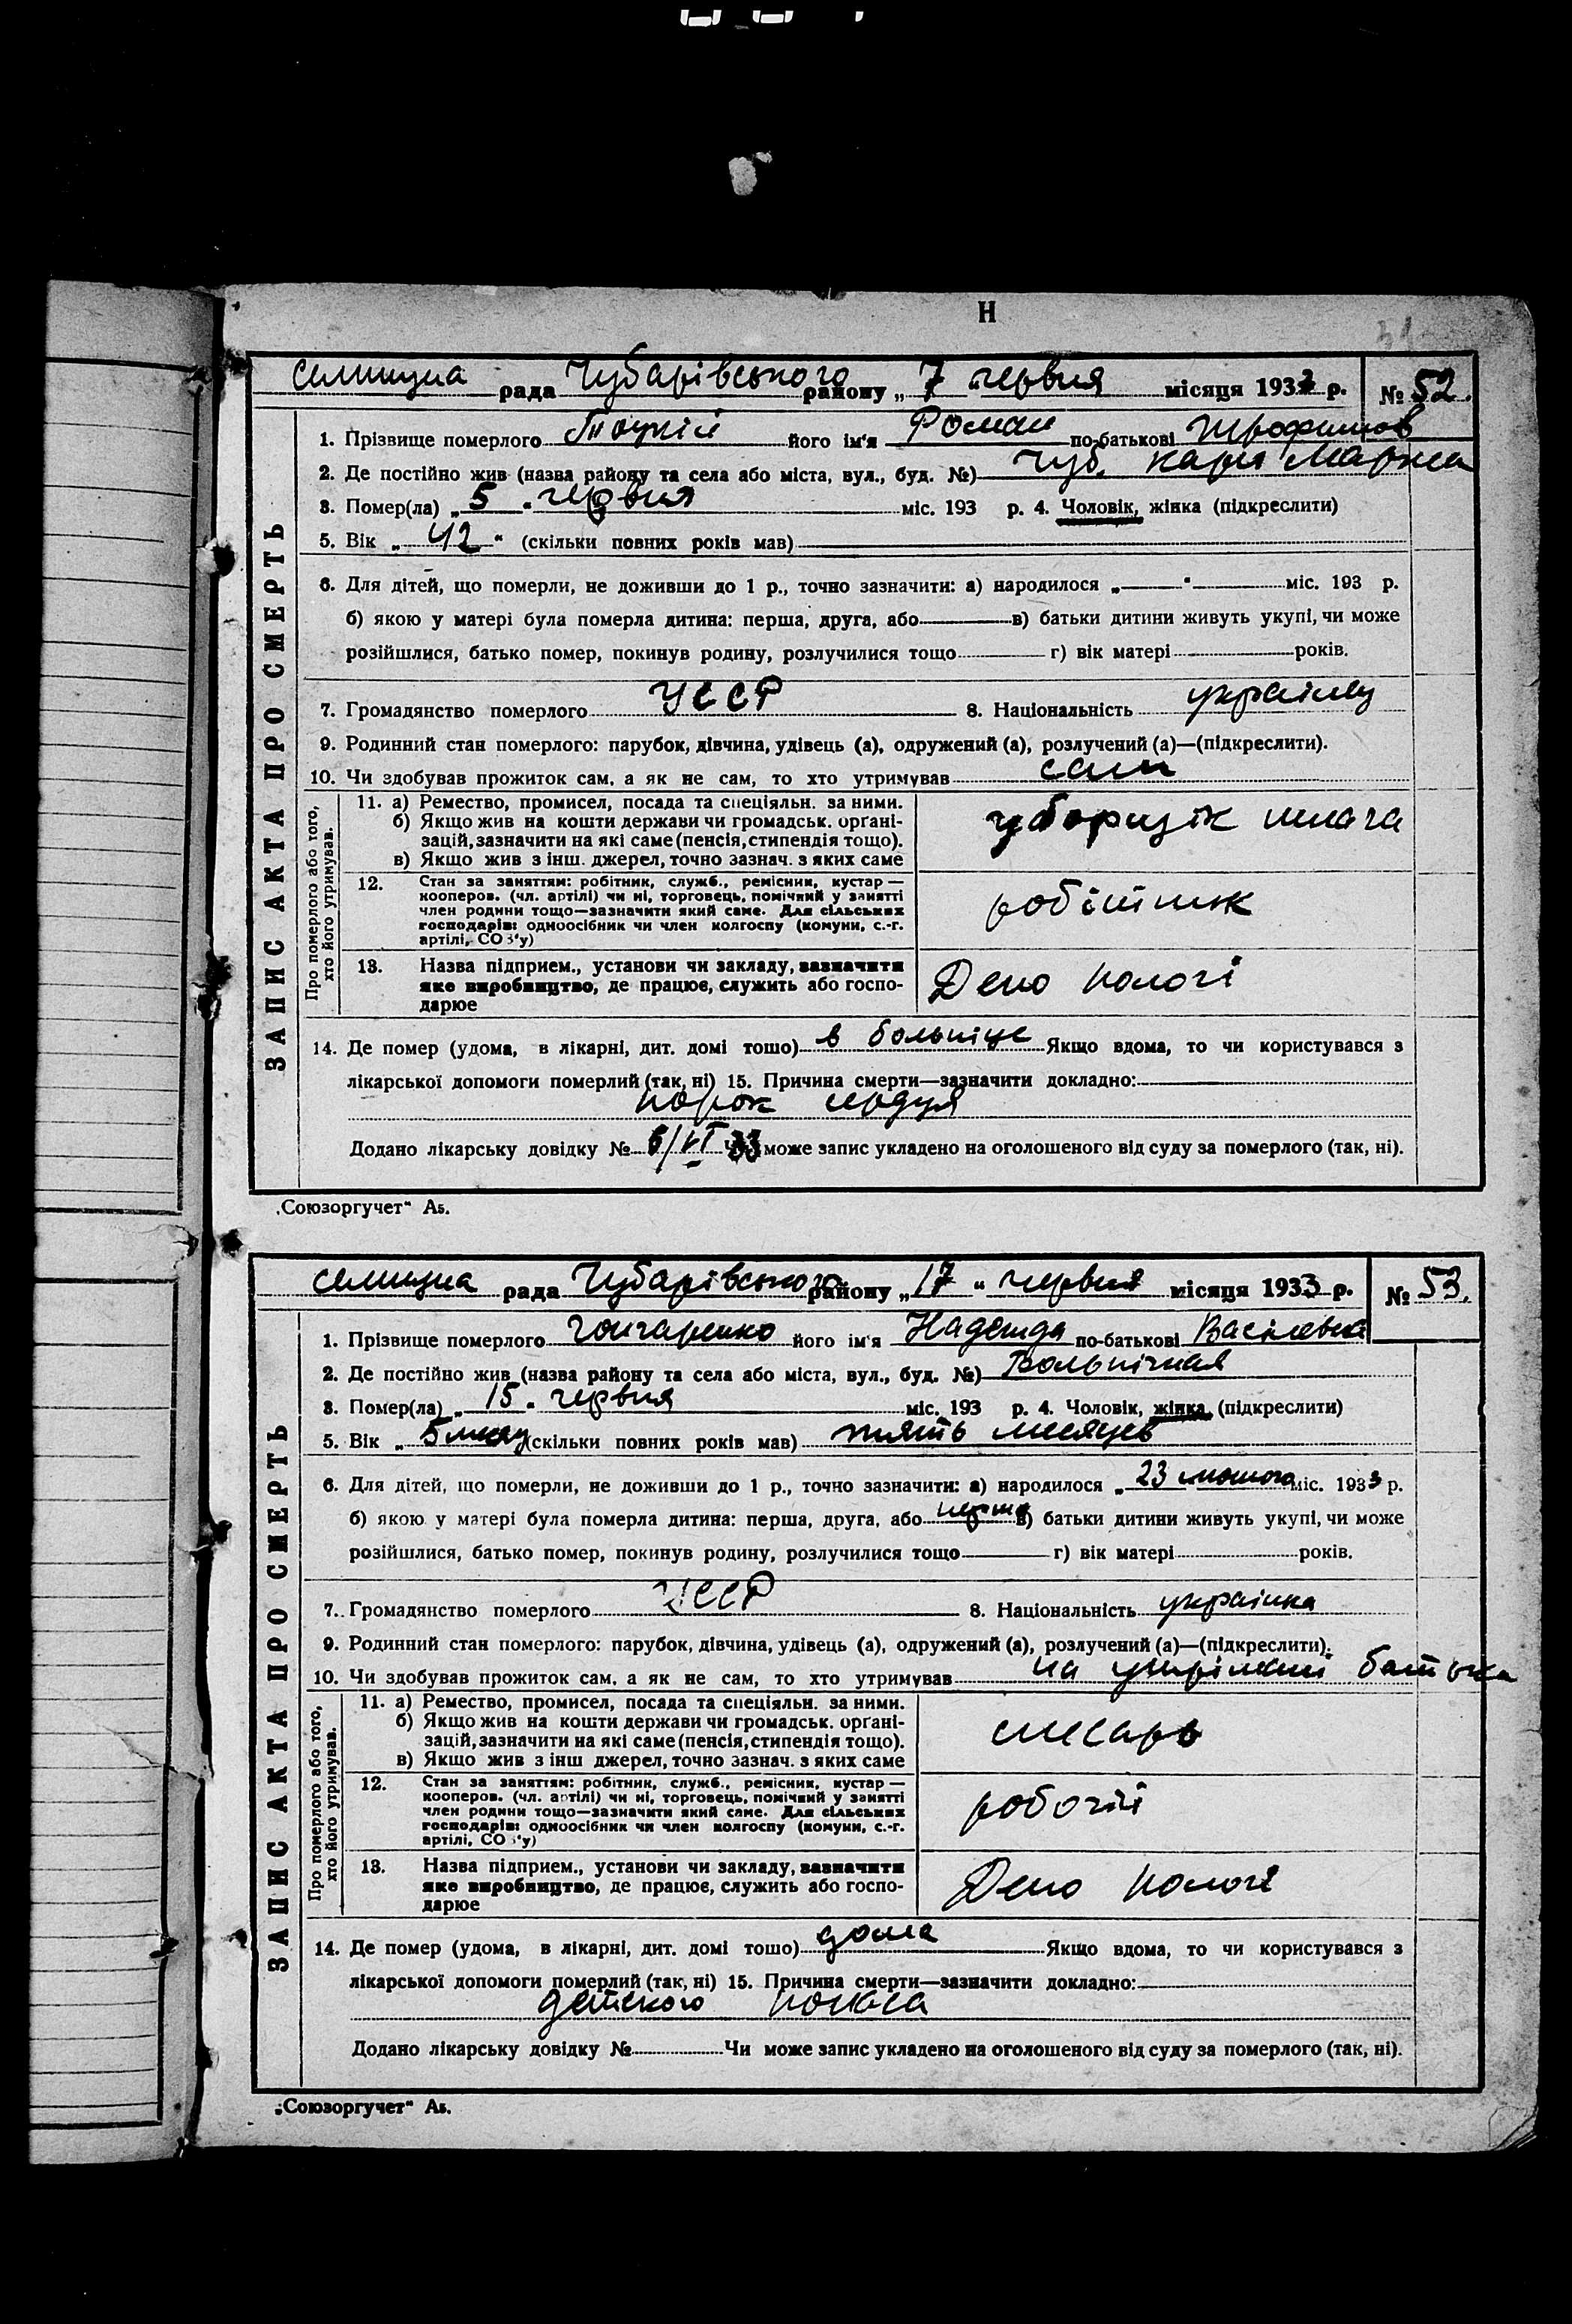 Н
селищна рада Чубарівського району „ 7 " червня місяця 1933 р. № 52.
1. Прізвище померлого його ім'я Роман по-батькові Трофимов
2. Де постійно жив (назва району та села або міста, вул., буд. №) Чуб. Карла Маркса
3. Помер(ла) „ 5 " червня міс. 193 р. 4. Чоловік, жінка (підкреслити)
5. Вік „ 42 " (скільки повних років мав)
6. Для дітей, що померли, не доживши до 1 р., точно зазначити: а) народилося „ — " міс. 193 р.
б) якою у матері була померла дитина: перша, друга, або в) батьки дитини живуть укупі, чи може
розійшлися, батько помер, покинув родину, розлучилися тощо г) вік матері років.
7. Громадянство померлого УССР 8. Національність українец
9. Родинний стан померлого: парубок, дівчина, удівець (а), одружений (а), розлучений (а)—(підкреслити).
10. Чи здобував прожиток сам, а як не сам, то хто утримував сам
ЗАПИС АКТА ПРО СМЕРТЬ
Про померлого або того, хто його утримував.
11. а) Ремество, промисел, посада та спеціяльн. за ними.
б) Якщо жив на кошти держави чи громадськ. орґані-
зацій, зазначити на які саме (пенсія, стипендія тощо).
в) Якщо жив з інш. джерел, точно зазнач. з яких саме
уборщік шлага
12. Стан за заняттям: робітник, служб., ремісник, кустар —
кооперов. (чл. артілі) чи ні, торговець, помічний у занятті
член родини тощо—зазначити який саме. Для сільських
господарів: одноосібник чи член колгоспу (комуни, с.-г.
артілі, СОЗ'у)
робітник
13. Назва підприєм., установи чи закладу, зазначити
яке виробництво, де працює, служить або госпо-
дарює
Депо Пологі
14. Де помер (удома, в лікарні, дит. домі тошо) в больніце Якщо вдома, то чи користувався з
лікарської допомоги померлий (так, ні) 15. Причина смерти—зазначити докладно:
порок сердця
Додано лікарську довідку № 6/VI 33 Чи може запис укладено на оголошеного від суду за померлого (так, ні).
„Союзоргучет" А5.
селищна рада Чубарівського району „ 17 " червня місяця 1933 р. № 53.
1. Прізвище померлого Гончаренко його ім'я Надежда по-батькові Васілевна
2. Де постійно жив (назва району та села або міста, вул., буд. №) Больнічная
3. Помер(ла) „ 15 " червня міс. 193 р. 4. Чоловік, жінка (підкреслити)
5. Вік „ 5 (скільки повних років мав) пять месяцев
6. Для дітей, що померли, не доживши до 1 р., точно зазначити: а) народилося „ 23 лютого міс. 1933 р.
б) якою у матері була померла дитина: перша, друга, або перша в) батьки дитини живуть укупі, чи може
розійшлися, батько помер, покинув родину, розлучилися тощо г) вік матері років.
7. Громадянство померлого УССР 8. Національність українка
9. Родинний стан померлого: парубок, дівчина, удівець (а), одружений (а), розлучений (а)—(підкреслити).
10. Чи здобував прожиток сам, а як не сам, то хто утримував на утрімкні батька
ЗАПИС АКТА ПРО СМЕРТЬ
Про померлого або того, хто його утримував.
11. а) Ремество, промисел, посада та спеціяльн. за ними.
б) Якщо жив на кошти держави чи громадськ. орґані-
зацій, зазначити на які саме (пенсія, стипендія тощо).
в) Якщо жив з інш джерел, точно зазнач. з яких саме
слесарь
12. Стан за заняттям: робітник, служб., ремісник, кустар —
кооперов. (чл. артілі) чи ні, торговець, помічний у занятті
член родини тощо—зазначити який саме. Для сільських
господарів: одноосібник чи член колгоспу (комуни, с.-г.
артілі, СОЗ'у)
робочій
13. Назва підприєм., установи чи закладу, зазначити
яке виробництво, де працює, служить або госпо-
дарює
Депо Пологі
14. Де помер (удома, в лікарні, дит. домі тошо) дома Якщо вдома, то чи користувався з
лікарської допомоги померлий (так, ні) 15. Причина смерти—зазначити докладно:
детского поноса
Додано лікарську довідку № Чи може запис укладено на оголошеного від суду за померлого (так, ні).
„Союзоргучет" А5.